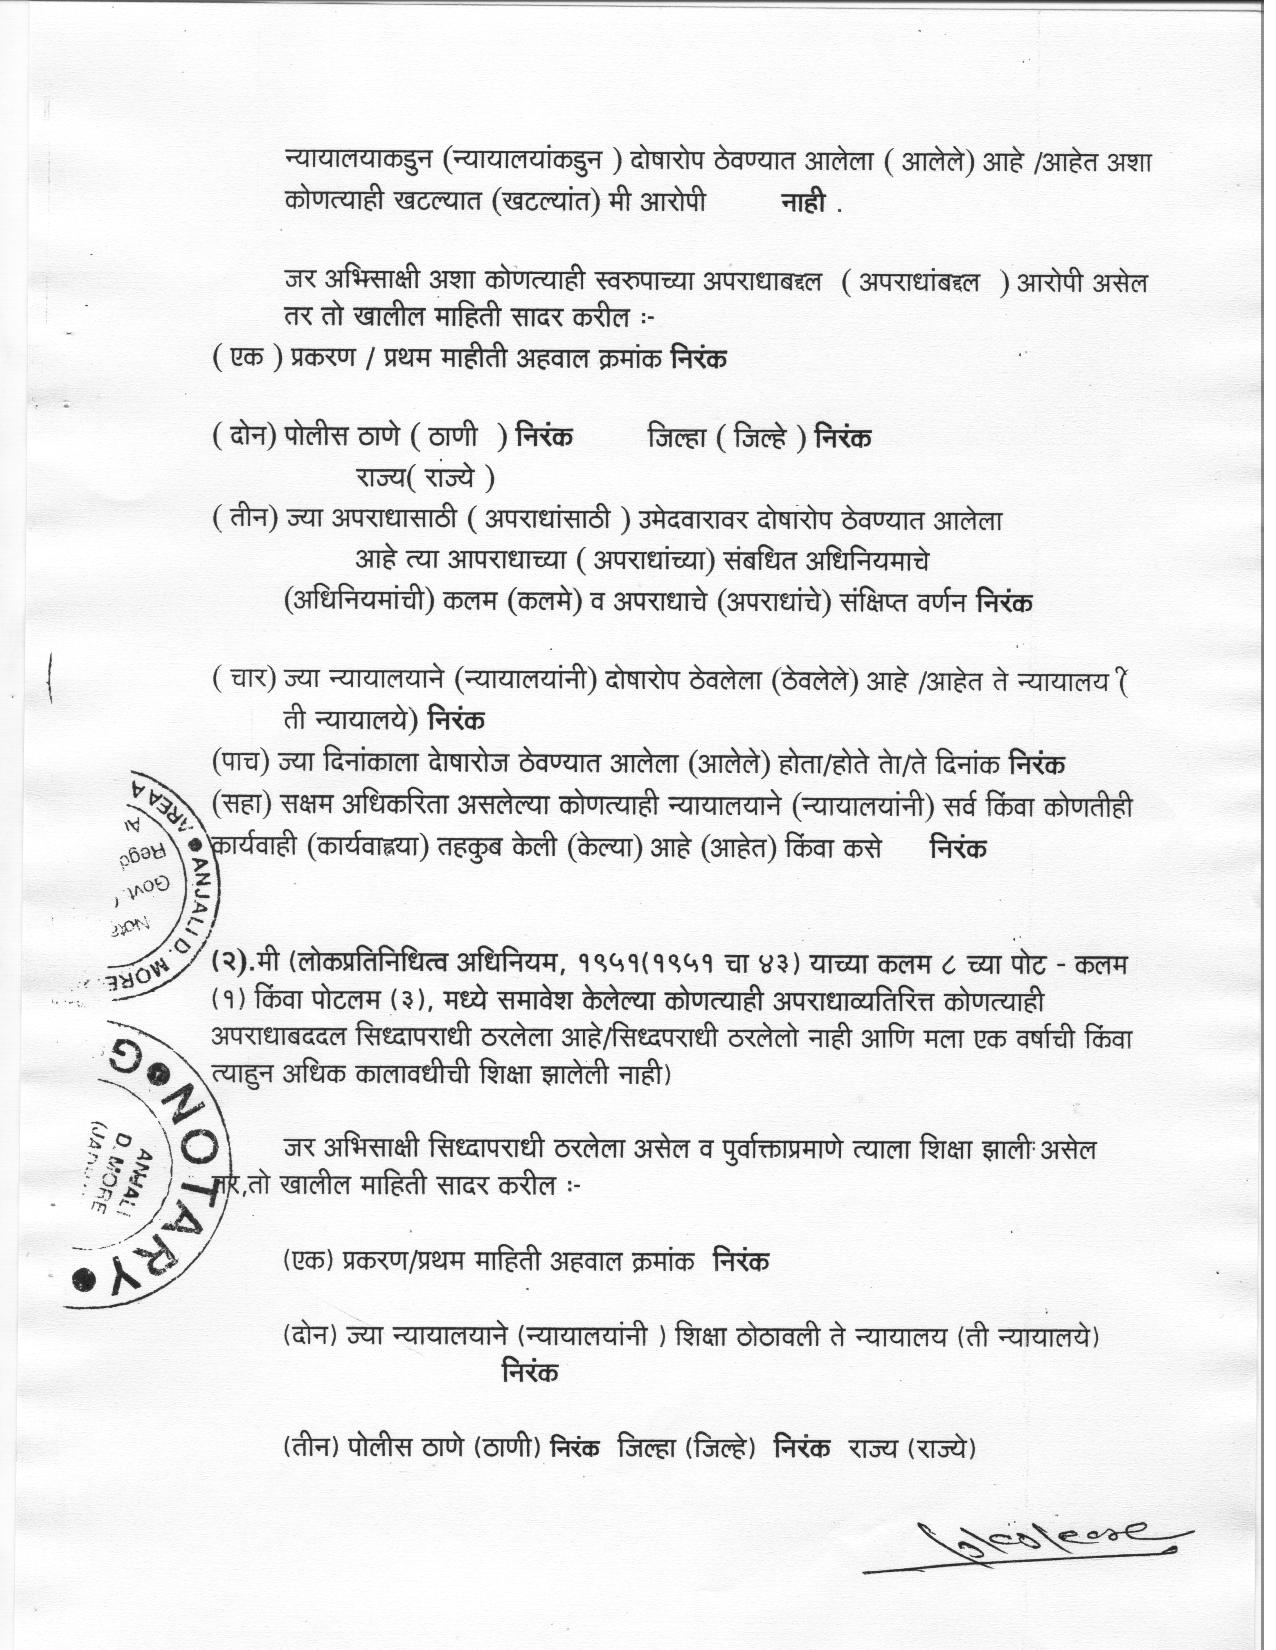 न्यायालयाकडुन (न्यायालयांकडुन ) दोषारोप ठेवण्यात आलेला ( आलेले) आहे /आहेत अशा
कोणत्याही खटल्यात (खटल्यांत) मी आरोपी नाही .
जर अभिसाक्षी अशा कोणत्याही स्वरुपाच्या अपराधाबद्दल ( अपराधांबद्दल ) आरोपी असेल
तर तो खालील माहिती सादर करील :-
( एक ) प्रकरण / प्रथम माहीती अहवाल क्रमांक निरंक
( दोन) पोलीस ठाणे ( ठाणी ) निरंक जिल्हा ( जिल्हे ) निरंक
राज्य( राज्ये )
( तीन) ज्या अपराधासाठी ( अपराधांसाठी ) उमेदवारावर दोषारोप ठेवण्यात आलेला
आहे त्या आपराधाच्या ( अपराधांच्या) संबधित अधिनियमाचे
(अधिनियमांची) कलम (कलमे) व अपराधाचे (अपराधांचे) संक्षिप्त वर्णन निरंक
( चार) ज्या न्यायालयाने (न्यायालयांनी) दोषारोप ठेवलेला (ठेवलेले) आहे /आहेत ते न्यायालय (
ती न्यायालये) निरंक
(पाच) ज्या दिनांकाला देाषारोज ठेवण्यात आलेला (आलेले) होता/होते तेा/ते दिनांक निरंक
(सहा) सक्षम अधिकरिता असलेल्या कोणत्याही न्यायालयाने (न्यायालयांनी) सर्व किंवा कोणतीही
कार्यवाही (कार्यवाह्रया) तहकुब केली (केल्या) आहे (आहेत) किंवा कसे निरंक
AREA A
Regd
Govt.
ANJALI D. MORE
(२).मी (लोकप्रतिनिधित्व अधिनियम, १९५१(१९५१ चा ४३) याच्या कलम ८ च्या पोट - कलम
(१) किंवा पोटलम (३), मध्ये समावेश केलेल्या कोणत्याही अपराधाव्यतिरित्त कोणत्याही
अपराधाबददल सिध्दापराधी ठरलेला आहे/सिध्दपराधी ठरलेलो नाही आणि मला एक वर्षाची किंवा
त्याहुन अधिक कालावधीची शिक्षा झालेली नाही)
NOTARY
ANJALI
D. MORE
जर अभिसाक्षी सिध्दापराधी ठरलेला असेल व पुर्वाक्ताप्रमाणे त्याला शिक्षा झाली असेल
तर,तो खालील माहिती सादर करील :-
(एक) प्रकरण/प्रथम माहिती अहवाल क्रमांक निरंक
(दोन) ज्या न्यायालयाने (न्यायालयांनी ) शिक्षा ठोठावली ते न्यायालय (ती न्यायालये)
निरंक
(तीन) पोलीस ठाणे (ठाणी) निरंक जिल्हा (जिल्हे) निरंक राज्य (राज्ये)